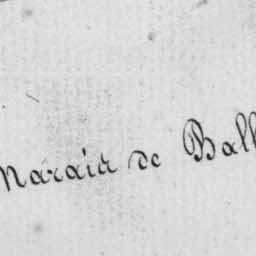 Marais de Ball